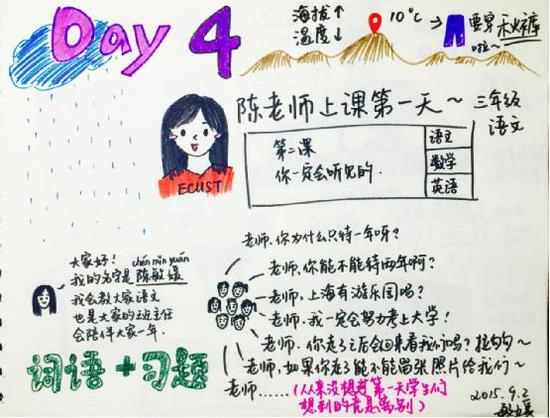 Day 4
海拔↑
温度↓
10°C
要穿秋裤
啦~
陈老师上课第一天~
三年级
语文
ECUST
第二课
你一定会听见的.
语文
数学
英语
大家好!
chén mǐn yuán
我的名字是陈敏媛
我会教大家语文
也是大家的班主任
会陪伴大家一年.
老师.你为什么只待一年呀?
老师.你能不能待两年啊?
老师.上海有游乐园吗?
老师.我一定会努力考上大学!
老师.你走了之后会回来看我们吗?拉钩~
老师.如果你走了能不能留张照片给我们~
老师……(从来没想过第一天学生们
想到的就是离别)
词语+习题
2015.9.2